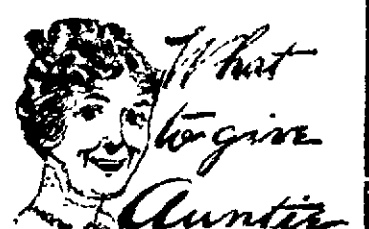 What
to give
Auntie